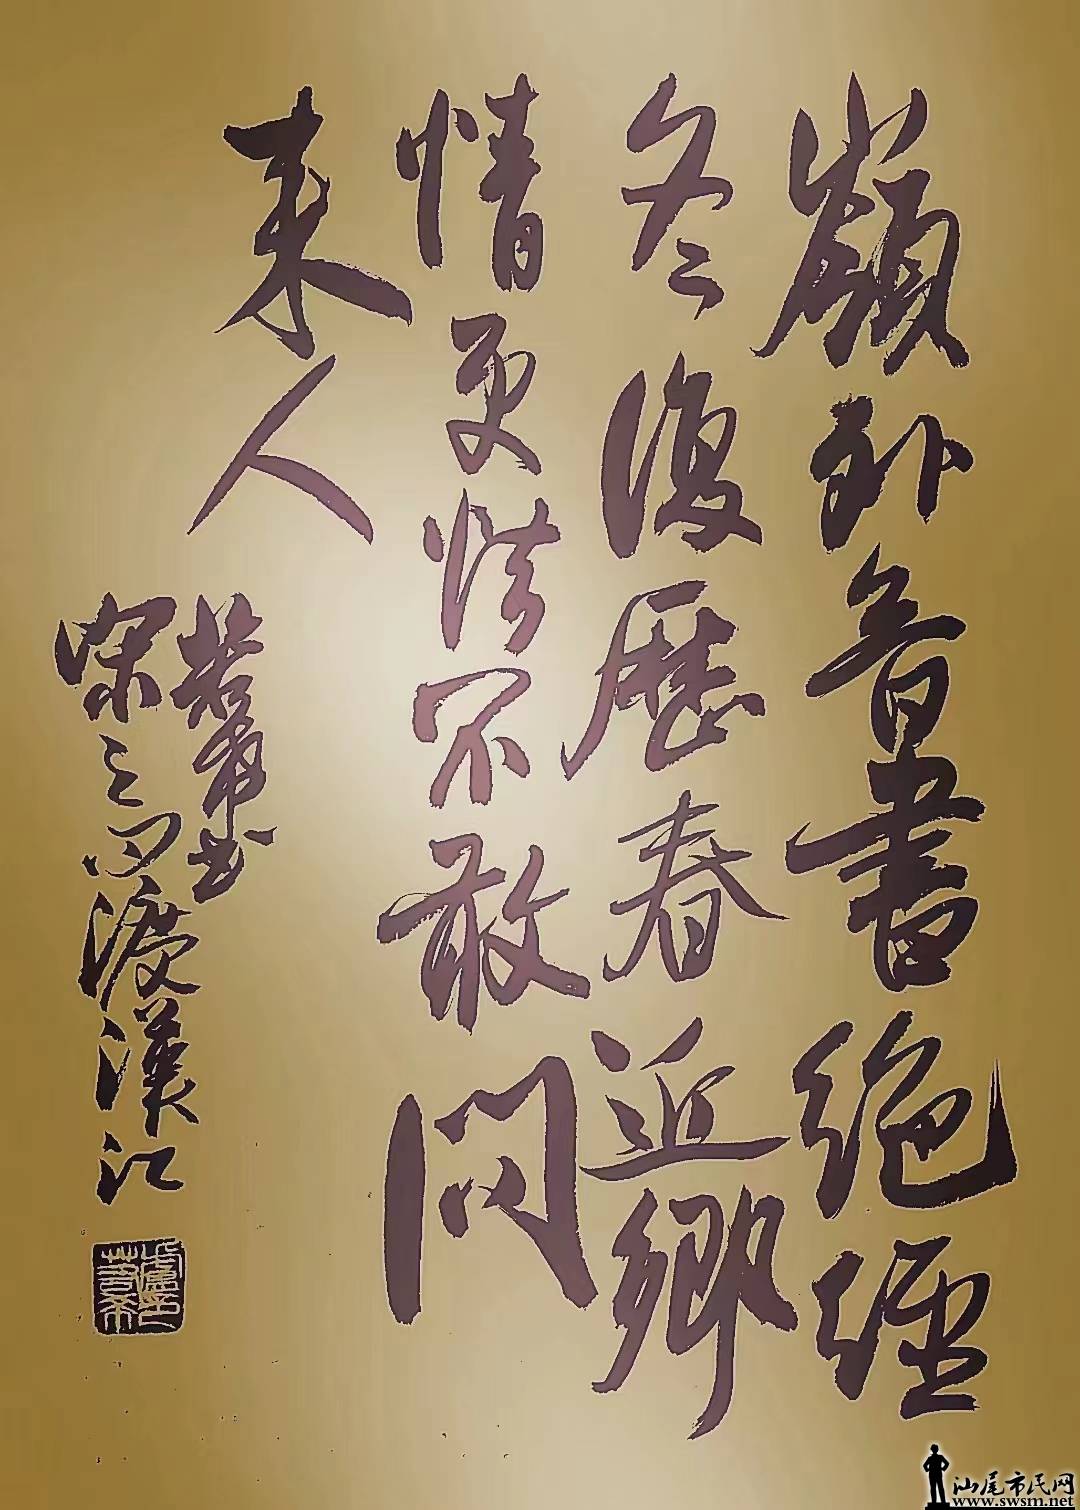 嶺外音書絕經
冬復歷春近鄉
情更怯不敢問
来人
希书
宋之问渡漢江
汕尾市民网
www.swsm.net